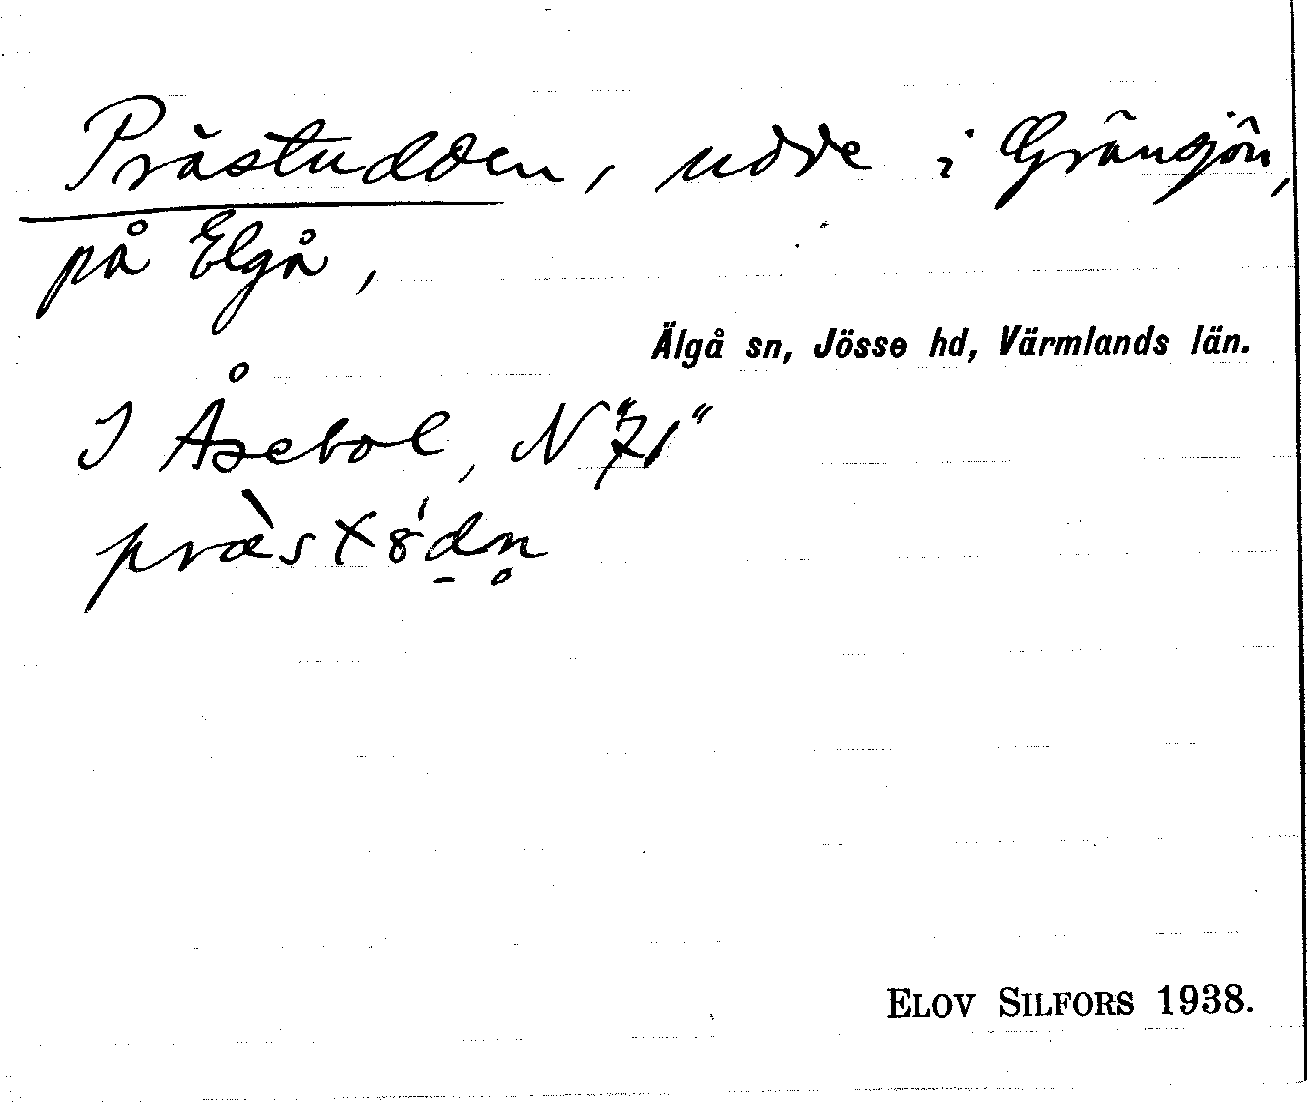 Prästudden, udde i Gränsjön,
på Elgå,
Älgå sn, Jösse hd, Värmlands län.
I Åsebol, N "71"
ELOV SILFORS 1938.